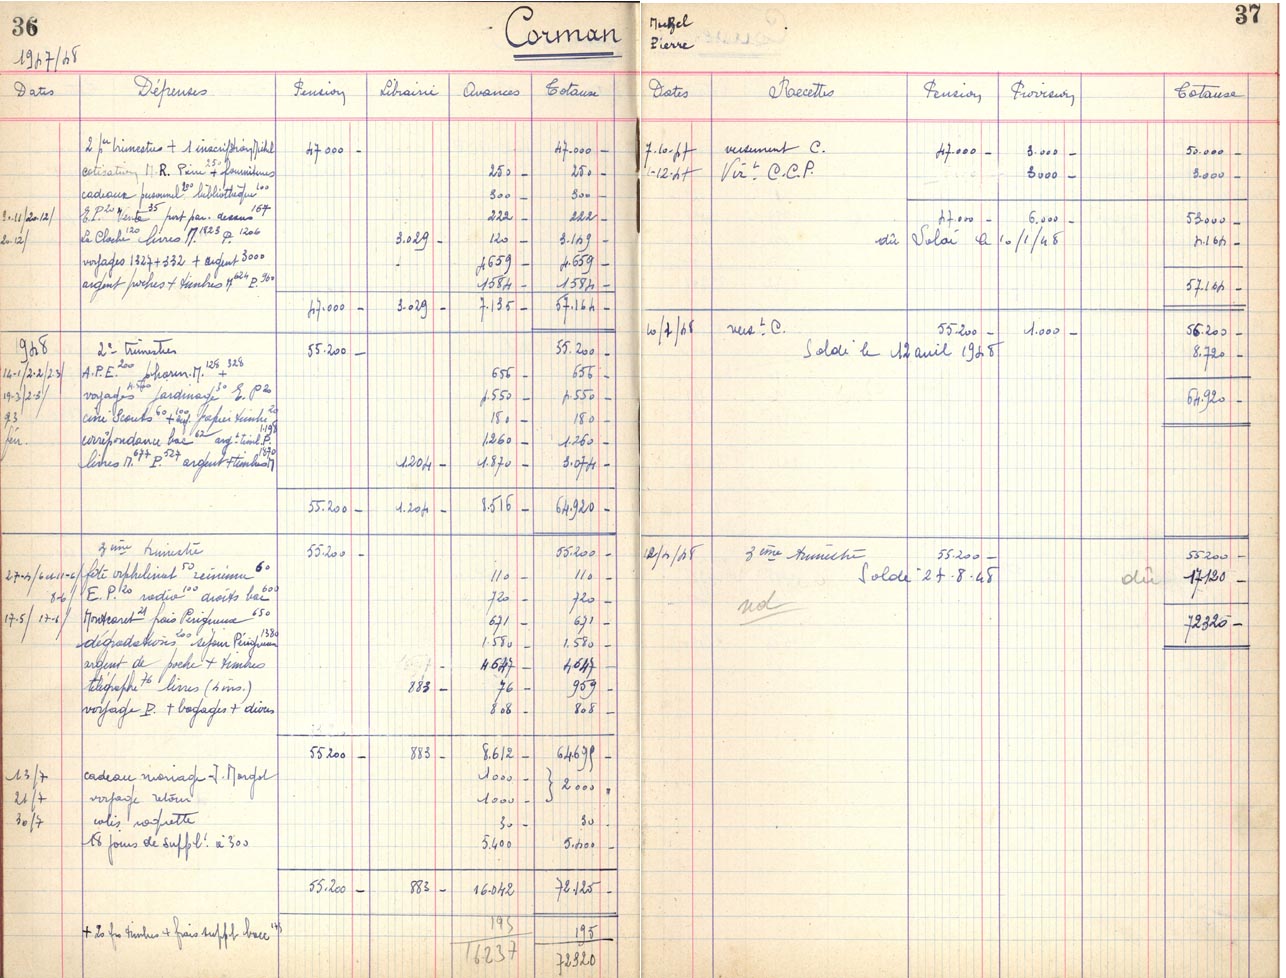 36
Corman
1947/48
Dates Dépenses Pension Librairie Avances Totaux
2 per trimestres + 1 inscription Michel 47000 - 47.000 -
cotisation M.R. Pierre 250 + fournitures 250 - 250 -
cadeaux personnel 200 bibliothèque 100 300 - 300 -
20.12/ E.P. 20 Vente 35 port par. dessus 167 222 - 222 -
20.12/ La Cloche 120 livres M. 1823 P. 1206 3.029 - 120 - 3.149 -
voyages 1327+332 + argent 3000 4659 - 4.659 -
argent poches + timbres M 624 P. 960 1584 - 1584 -
47.000 - 3.029 - 7.135 - 57.164 -
1948 2e trimestres 55.200 - 55.200 -
14-1/2-2/2.3/ A.P.E. 200 pharm. M. 128 + 328 656 - 656 -
19-3/2-3/ voyages 4500 jardinage 30 E.P 20 4.550 - 4.550 -
9.3 ciné Scouts 60 + 100 papier timbré 20 180 - 180 -
fév. correspondance bac 62 argt timb. P. 1198 1260 - 1.260 -
livres M. 677 P. 527 argent + timbres M 1870 1.204 - 1.870 - 3.074 -
55.200 - 1.204 - 8.516 - 64.920 -
3ème trimestre 55.200 - 55.200 -
fête orphelinat 50 60 110 - 110 -
8-6/ E.P. 20 radio 100 droits bac 600 720 - 720 -
17.5/ 17-6/ Montcaret 21 frais Périgueux 650 671 - 671 -
dégradations 200 séjour Périgueux 1380 1.580 - 1.580 -
argent de poche + timbres 4647 - 4647 -
télégraphe 76 livres (4 ins.) 883 - 76 - 959 -
voyage P. + bagages + divers 808 - 808 -
55200 - 883 - 8.612 - 64695 -
13/7 cadeau mariage - J. Margot 1000 -
2000 "
21/7 voyage retour 1000 -
30/7 colis raquette 30 - 30 -
18 jours de supplt. à 300 5.400 5.400 -
55.200 - 883 - 16.042 72.125 -
+ 20 frs timbres + frais suppl bacc 175 195 195 -
16237 72320
37
Michel
Pierre
Dates Recettes Pension Provision Totaux
7.10.47 versement C. 47.000 - 3.000 - 50.000 -
1-12.47 Virt. C.C.P. 3000 - 3.000 -
47.000 - 6.000 - 53.000 -
dû Soldé le 10/1/48 4.164 -
57.164 -
10/1/48 verst C. 55.200 - 1.000 - 56.200 -
Soldé le 12 avril 1948 8.720 -
64.920 -
12/4/48 3ème trimestre 55.200 - 55200 -
Soldé 27-8-48 dû 17120 -
nd
72320 -